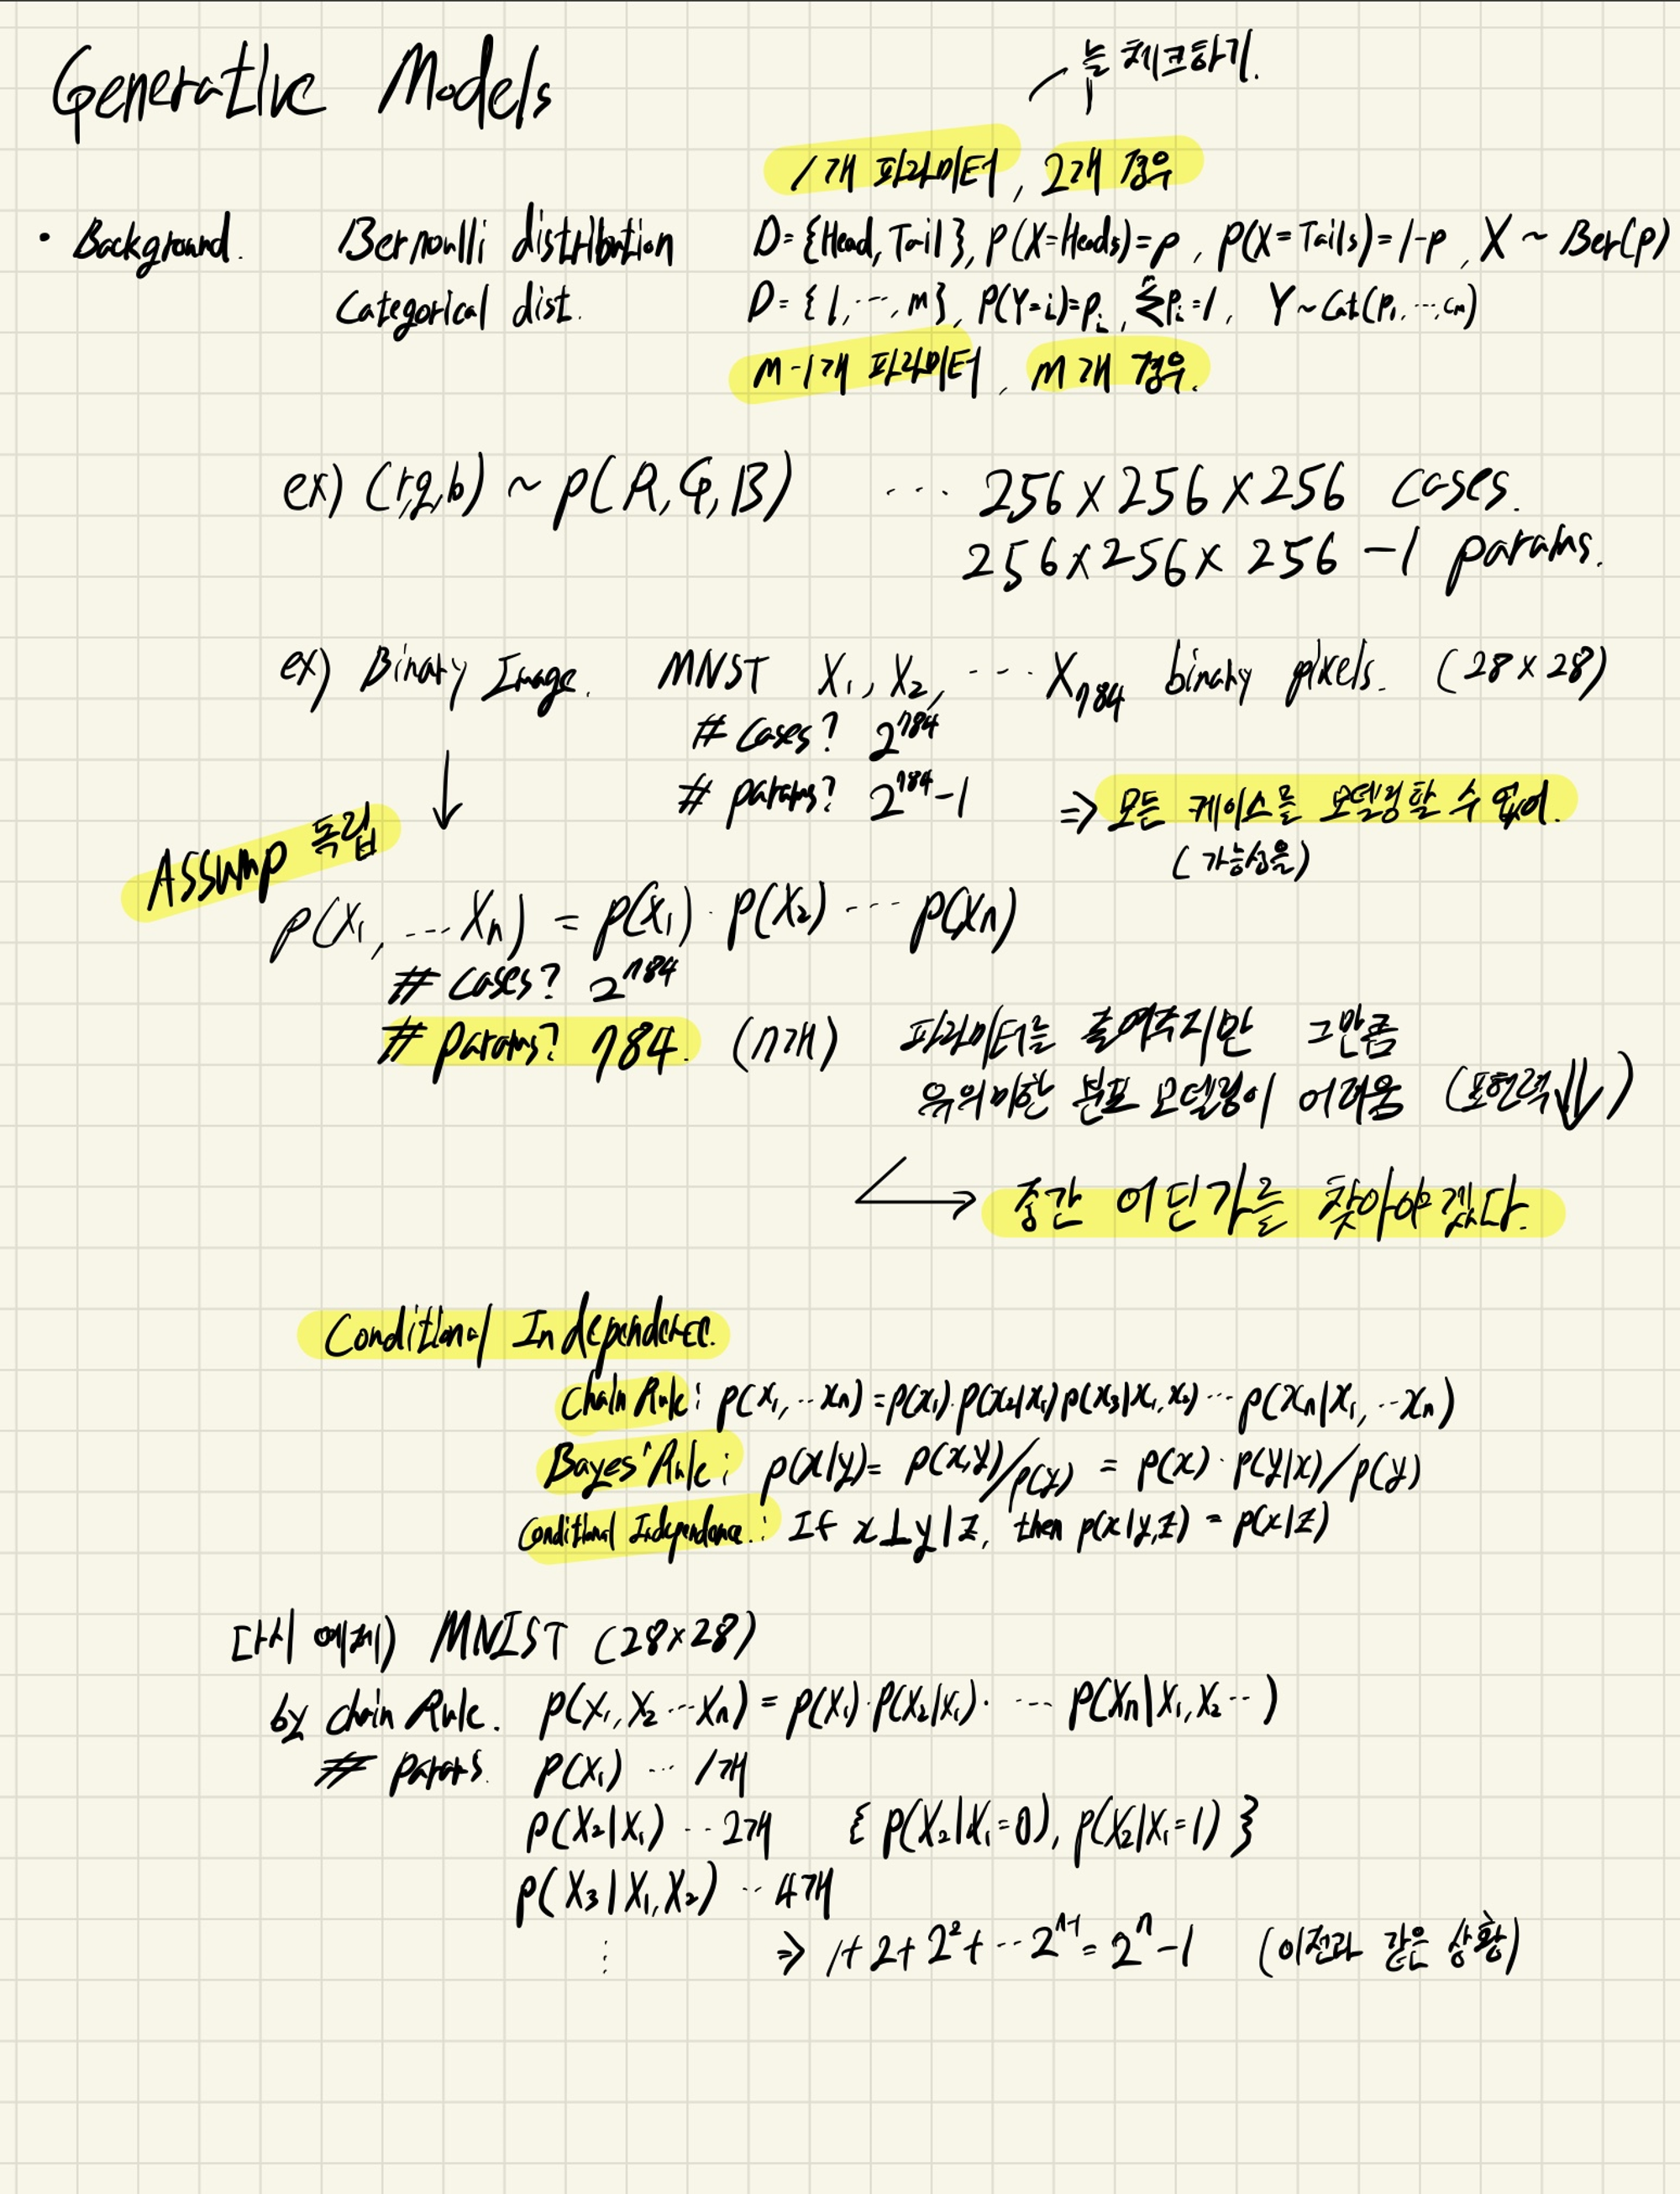 Generative Models
늘 체크하기.
1개 파라미터, 2개 경우
· Background. Bernoulli distribution D={Head, Tail}, P(X=Heads)=p, P(X=Tails)=1-p, X ~ Ber(p)
Categorical dist. D={1, ···, m}, P(Y=i)=pᵢ, Σᵐpᵢ=1, Y~Cat(p₁, ···, cₘ)
m-1개 파라미터, m개 경우.
ex) (r,g,b) ~ p(R,G,B) ··· 256×256×256 cases.
256×256×256-1 params.
ex) Binary Image. MNST X₁, X₂, ··· X₇₈₄ binary pixels. (28×28)
# cases? 2⁷⁸⁴
# params? 2⁷⁸⁴-1 ⇒ 모든 케이스를 모델링할 수 없어.
(가능성을)
↓
Assump 독립
p(X₁, ··· Xₙ) = p(X₁)·p(X₂) ··· p(Xₙ)
# cases? 2⁷⁸⁴
# params? 784. (n개) 파라미터를 줄여주지만 그만큼
유의미한 분포 모델링이 어려움 (표현력⇓)
→ 중간 어딘가를 찾아야겠다.
Conditional Independence.
Chain Rule: p(x₁, ··· xₙ) = p(x₁)·p(x₂|x₁)p(x₃|x₁,x₂) ··· p(xₙ|x₁, ··· xₙ)
Bayes' Rule: p(x|y) = p(x,y)/p(y) = p(x)·p(y|x)/p(y)
Conditional Independence.: If x⊥y|z, then p(x|y,z) = p(x|z)
다시 예제) MNIST (28×28)
by chain Rule. p(X₁, X₂ ··· Xₙ) = p(X₁)·p(X₂|X₁)· ··· p(Xₙ|X₁,X₂ ···)
# params. p(X₁) ··· 1개
p(X₂|X₁) ·· 2개 { p(X₂|X₁=0), p(X₂|X₁=1) }
p(X₃|X₁,X₂) ·· 4개
⋮ ⇒ 1+2+2²+ ··· 2ⁿ⁻¹ = 2ⁿ-1 (이전과 같은 상황)